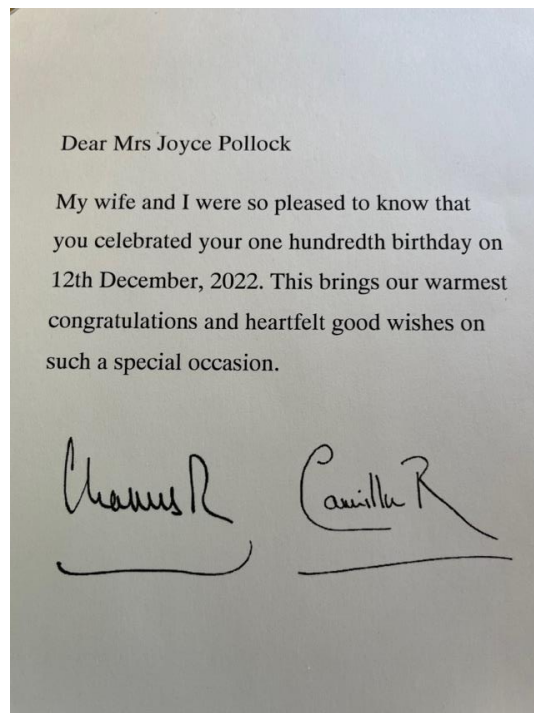 Dear Mrs Joyce Pollock
My wife and I were so pleased to know that
you celebrated your one hundredth birthday on
12th December, 2022. This brings our warmest
congratulations and heartfelt good wishes on
such a special occasion.
Charles R Camilla R